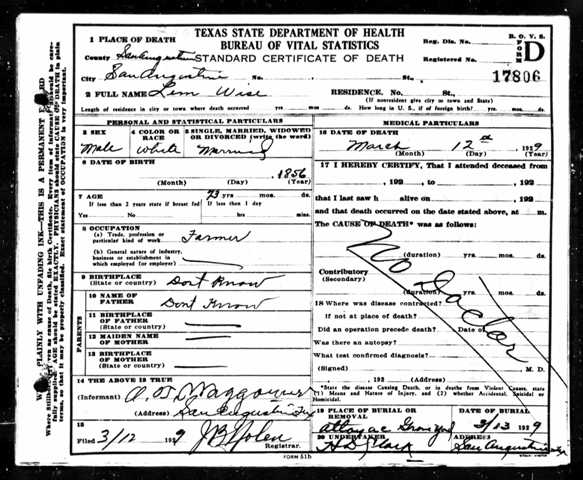 TEXAS STATE DEPARTMENT OF HEALTH
BUREAU OF VITAL STATISTICS
STANDARD CERTIFICATE OF DEATH
B. O. V. S.
FORM D
Reg. Dis. No.
Registered No.
17806
1 PLACE OF DEATH
County San Augustine
City San Augustine No. St.,
2 FULL NAME Lem Wise RESIDENCE. No. St.,
(If nonresident give city or town and State)
Length of residence in city or town where death occurred yrs. mos. ds. How long in U. S., if of foreign birth? yrs. mos. ds.
PERSONAL AND STATISTICAL PARTICULARS
3 SEX
Male
4 COLOR OR RACE
White
5 SINGLE, MARRIED, WIDOWED OR DIVORCED (write the word)
Married
6 DATE OF BIRTH
1856
(Month) (Day) (Year)
7 AGE 73 yrs. mos. ds.
If less than 2 years state if breast fed If less than 1 day
Yes No hrs. min.
8 OCCUPATION
(a) Trade, profession or particular kind of work Farmer
(b) General nature of industry, business or establishment in which employed (or employer)
9 BIRTHPLACE
(State or country) Dont Know
10 NAME OF FATHER Dont Know
PARENTS
11 BIRTHPLACE OF FATHER
(State or country)
12 MAIDEN NAME OF MOTHER
13 BIRTHPLACE OF MOTHER
(State or country)
14 THE ABOVE IS TRUE
(Informant)
(Address) San Augustine Tex
15
Filed 3/12 1929
Registrar.
MEDICAL PARTICULARS
16 DATE OF DEATH
March 12 1929
(Month) (Day) (Year)
17 I HEREBY CERTIFY, That I attended deceased from
, 192 , to , 192
that I last saw h alive on , 192
and that death occurred on the date stated above, at m.
The CAUSE OF DEATH* was as follows:
No Doctor
(duration) yrs. mos. ds.
Contributory
(Secondary)
(duration) yrs. mos. ds.
18 Where was disease contracted?
If not at place of death?
Did an operation precede death? Date of
Was there an autopsy?
What test confirmed diagnosis?
(Signed) M. D.
, 192 (Address)
*State the disease Causing Death, or in deaths from Violent Causes, state (1) Means and Nature of Injury, and (2) whether Accidental, Suicidal or Homicidal.
19 PLACE OF BURIAL OR REMOVAL
DATE OF BURIAL
3/13 1929
20 UNDERTAKER
ADDRESS
San Augustine
FORM 51b